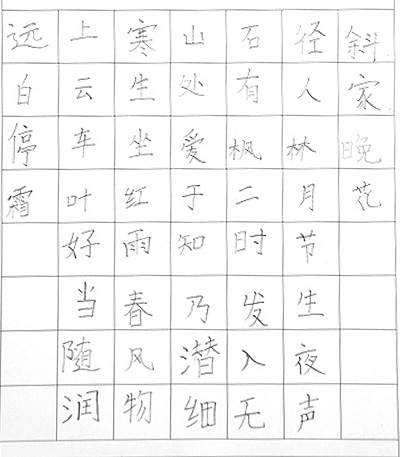 远上寒山石径斜
白云生处有人家
停车坐爱枫林晚
霜叶红于二月花
好雨知时节
当春乃发生
随风潜入夜
润物细无声